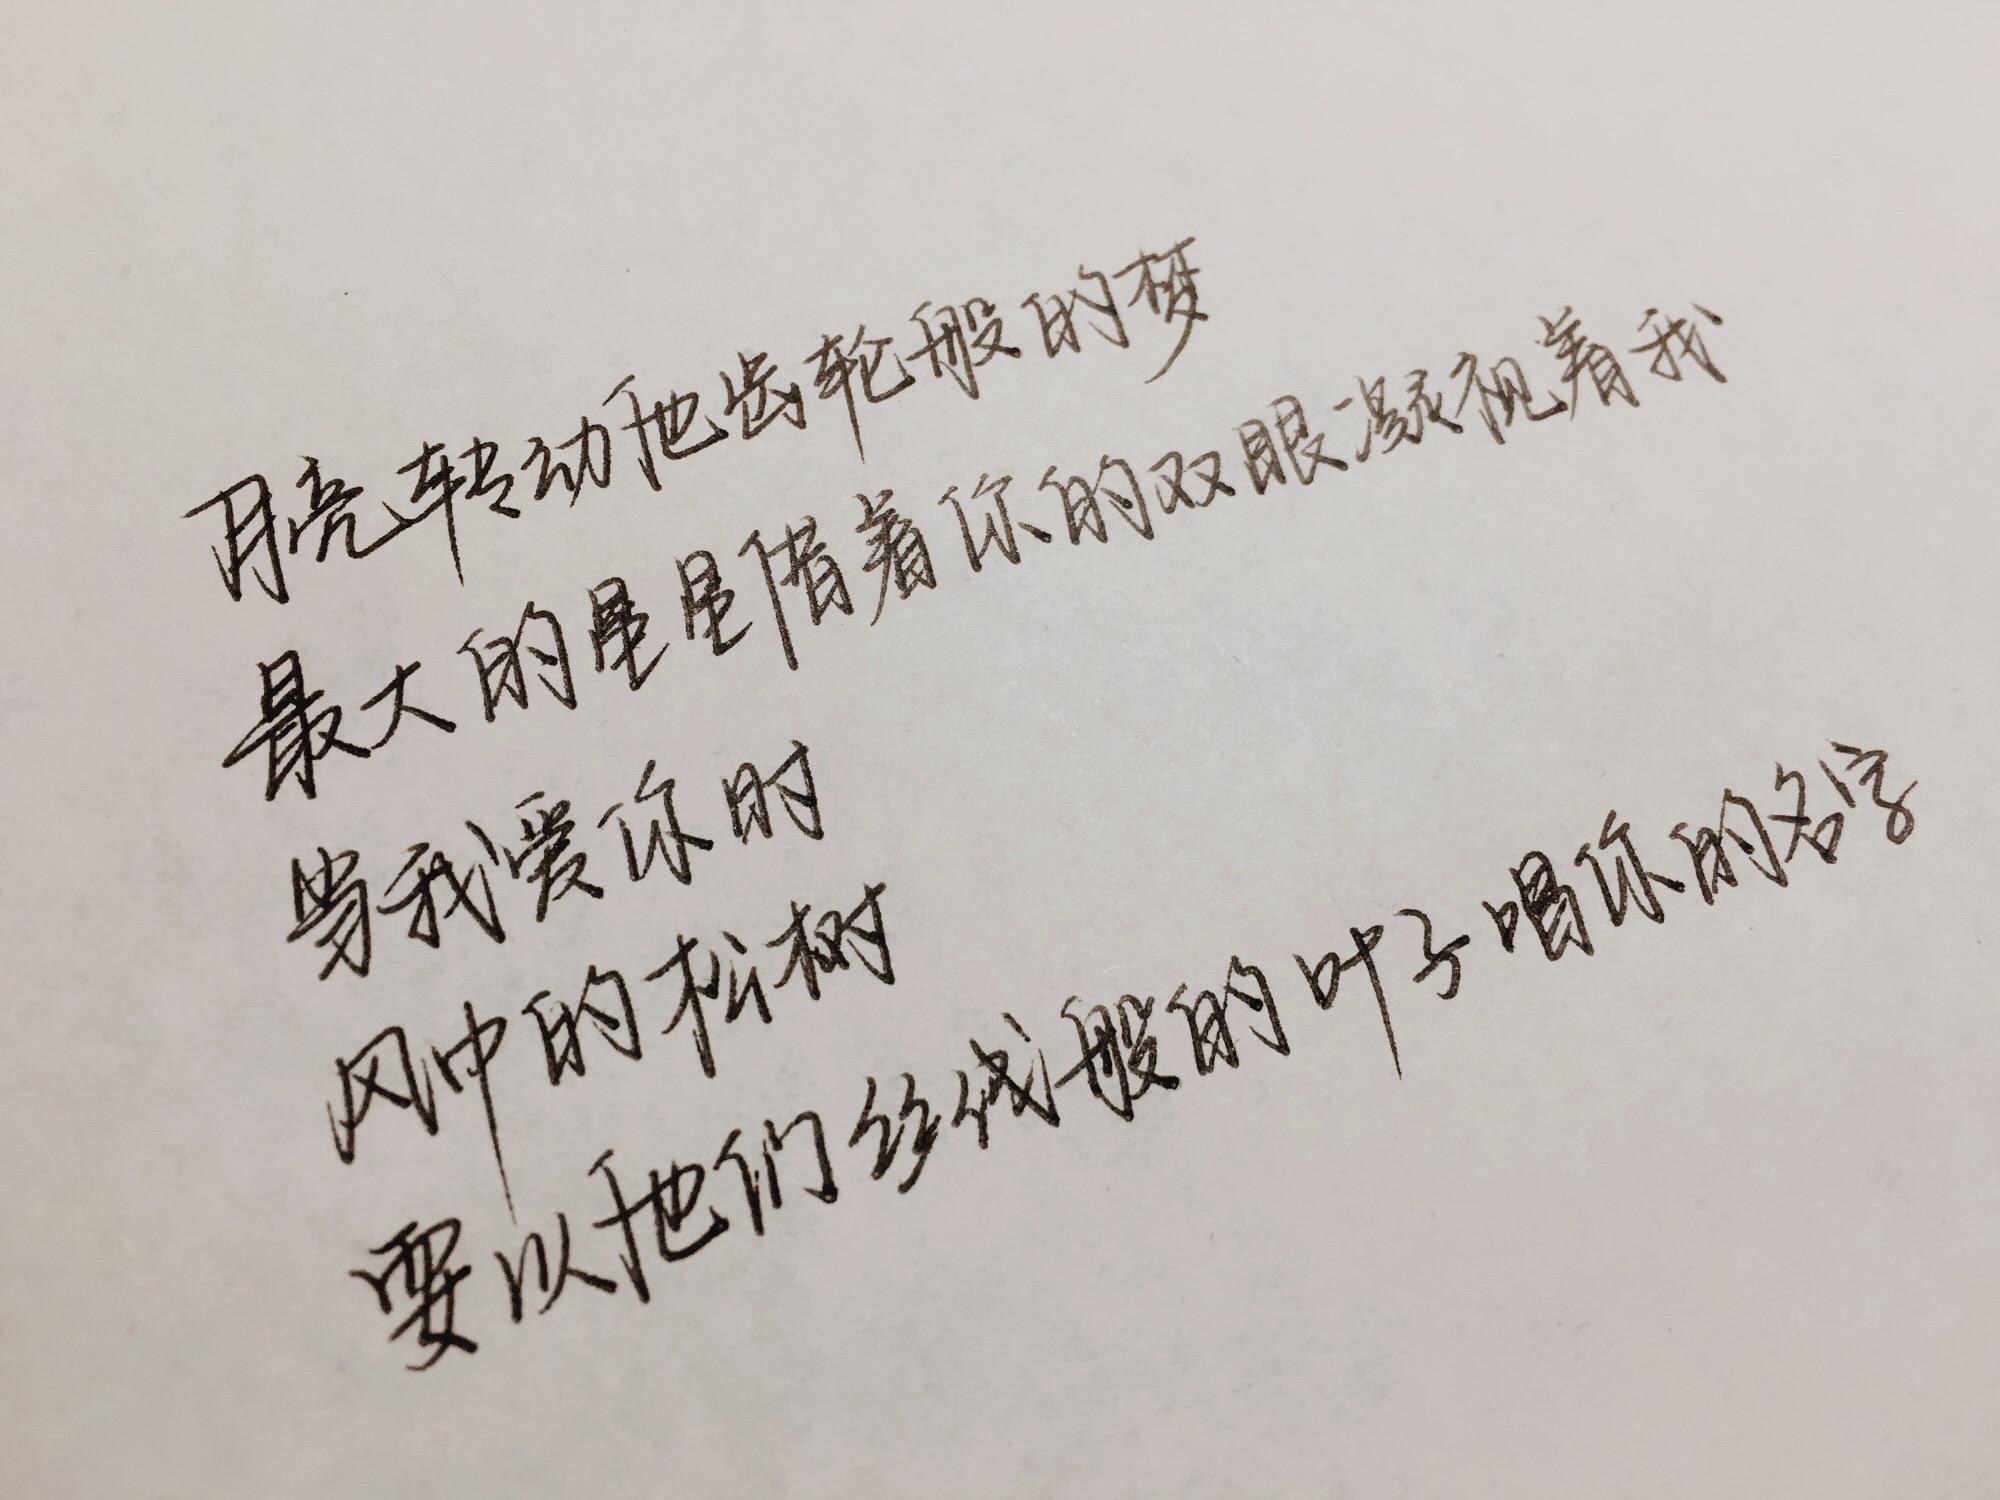 月亮转动他齿轮般的梦
最大的星星借着你的双眼凝视着我
当我爱你时
风中的松树
要以他们丝线般的叶子唱你的名字